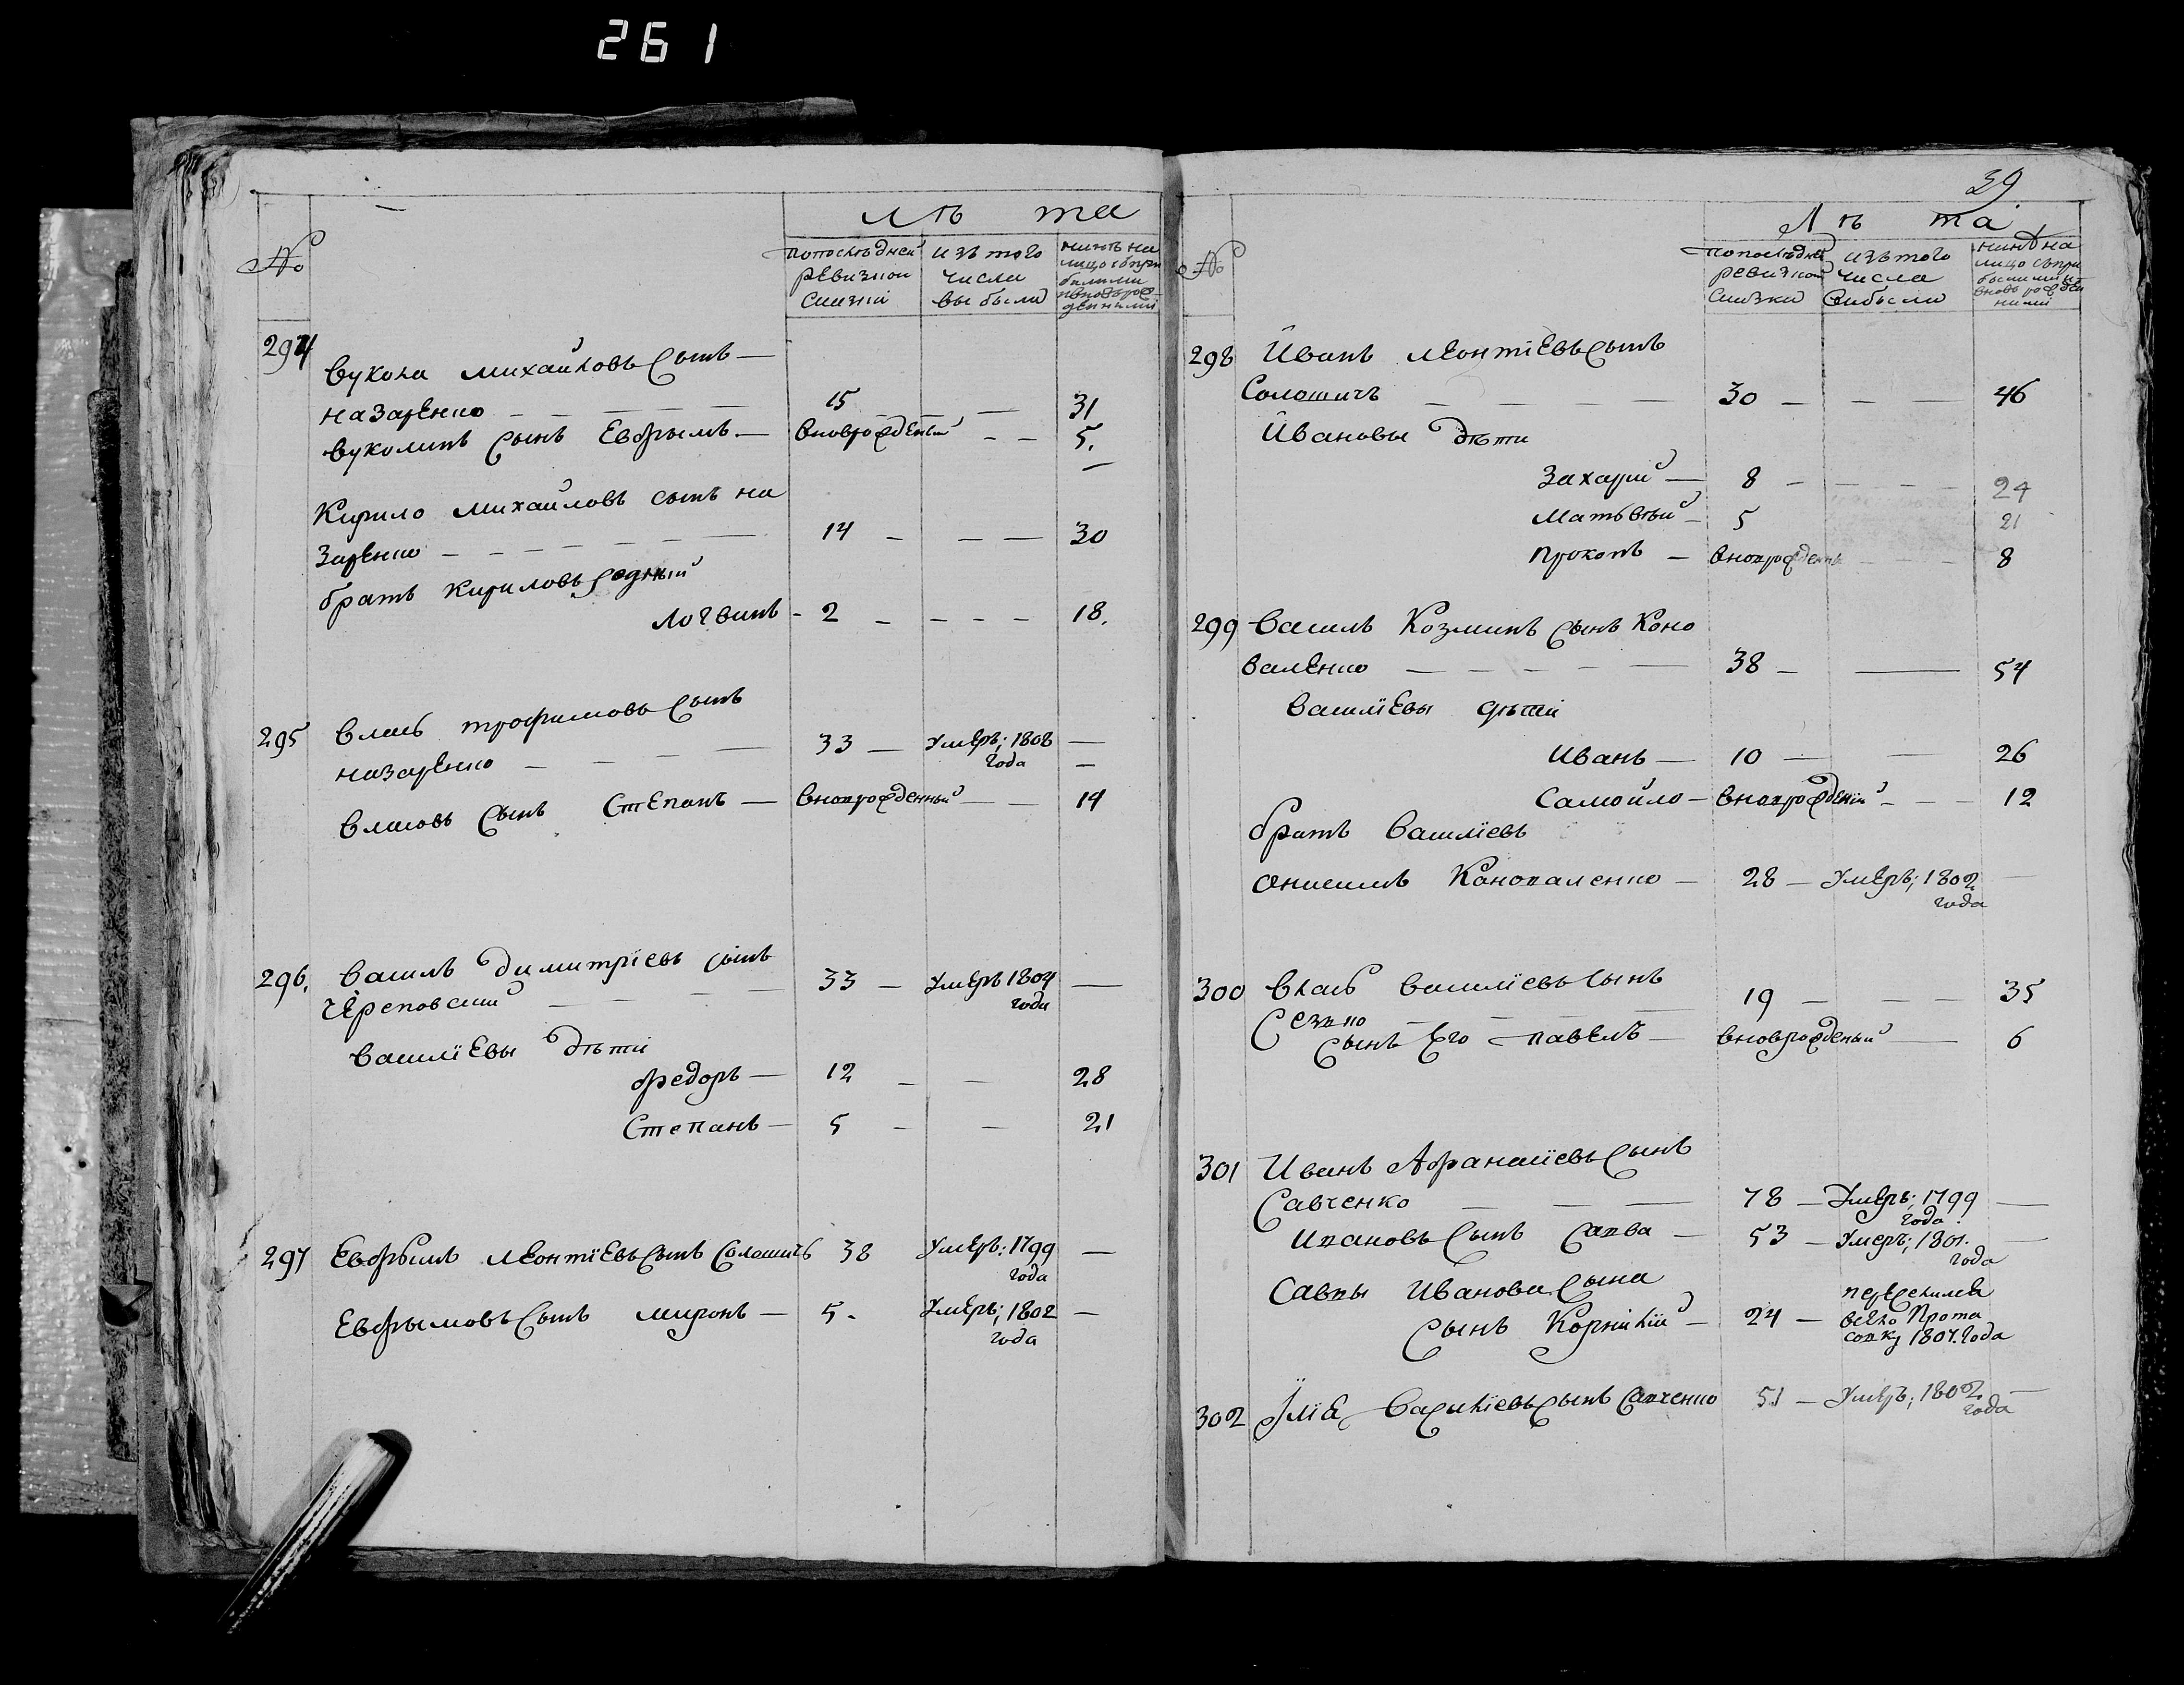 261
Лѣ та
№
попослѣдней ревизкои сказкѣ
изъ того числа выбыли
нинѣ на лицо съ прибилими и вновьрожденними
294
Вукола михайловъ сынъ —
назаренко — 15 — 31
Вуколинъ сынъ Евфрымъ — вноврожденый — — 5.
Кирило михайловъ сынъ на
заренко — 14 — — — 30
братъ Кириловъ родный
логвинъ — 2 — — — — 18.
295 Власъ трофимовъ сынъ
назаренко — 33 — умеръ; 1808 года —
Власовъ сынъ Степанъ — вноврожденный — — 14
296. Василь димитрїевъ сынъ
Череповский — 33 — умеръ 1804 года —
Василїевы дѣти
федоръ — 12 — — 28
Степанъ — 5 — — 21
297 Евфримъ леонтїевъ сынъ Солошичъ 38 умеръ: 1799 года —
Евфрымовъ сынъ миронъ — 5. умеръ; 1802 года —
39
Лѣ та
№
попослѣдней ревизкой сказки
изъ того числа вибыли
нинѣ на лицо съ прибылими и вновьрожденними
298 Йванъ леонтїевъ сынъ
Солошичъ — 30 — — — 46
Йвановы дѣти
Захарий — 8 — — — — 24
Матьвѣй — 5 21
прокопъ — вноврожденъ — — — 8
299 Василь Козминъ сынъ Коно
валенко — 38 — — 54
Василїевы дѣти
Иванъ — 10 — — 26
Самойло — вноврожденїй — — — 12
братъ Василїевъ
Онисимъ Коноваленко — 28 — умеръ; 1802 года —
300 Власъ Василїевъ сынъ
19 — — — 35
сынъ его павелъ — вноврожденый — 6
301 Иванъ Афанасїевъ сынъ
Савченко — 78 — умеръ; 1799 года —
Ивановъ сынъ Савва — 53 — умеръ; 1801. года —
Саввы Иванова сына
сынъ Корнилїй — 24 — переселился
1807. года
302 Ілїя Василїевъ сынъ Савченко 51 — умеръ; 1802 года —